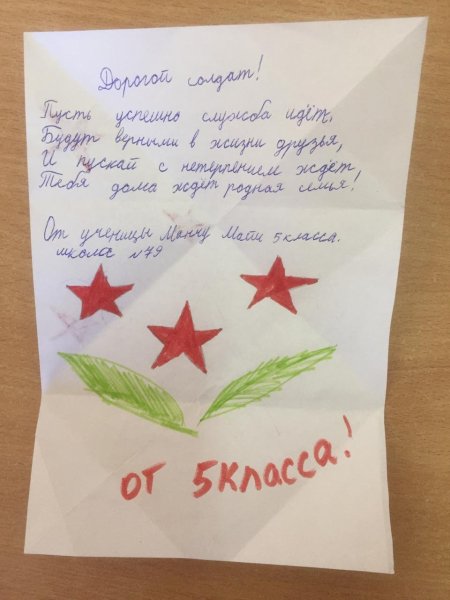 Дорогой солдат!
Пусть успешно служба идёт,
Будут верными в жизни друзья,
И пускай с нетерпением ждёт,
Тебя дома ждёт родная семья!
От ученицы Мати 5 класса.
№79
от 5 класса!